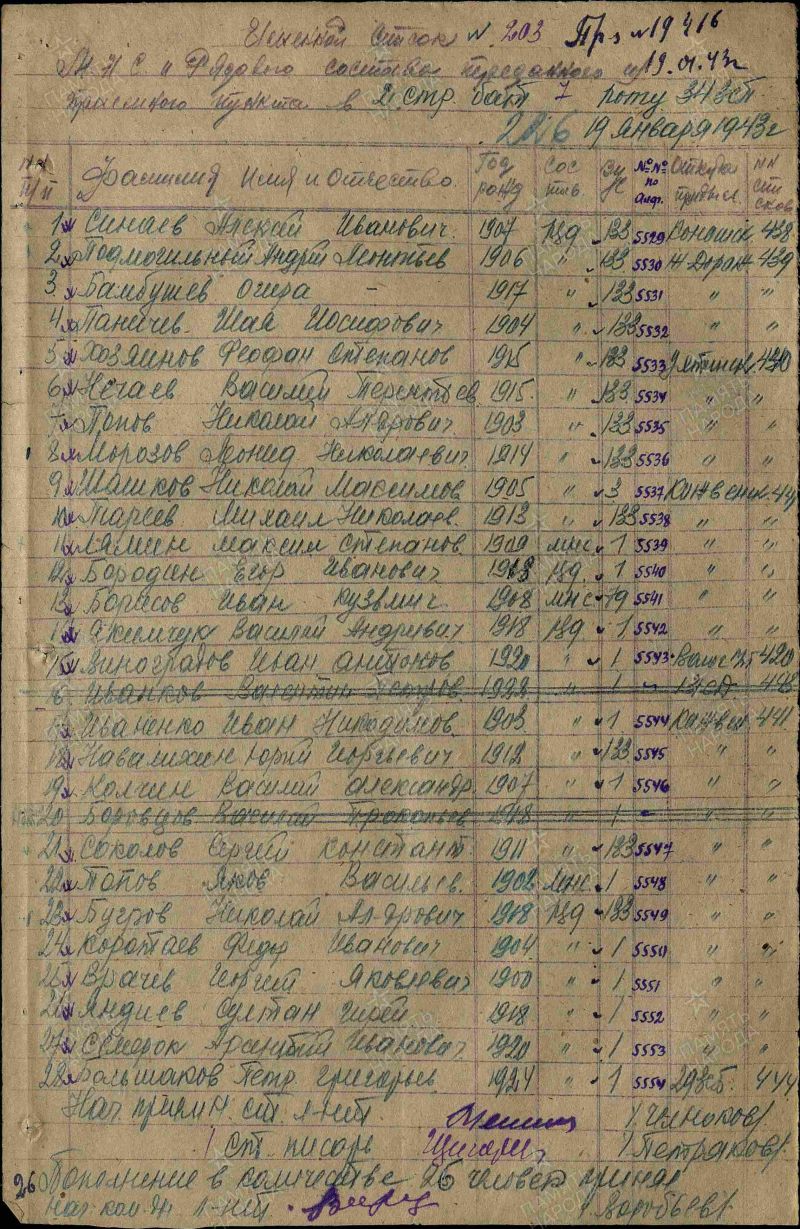 Именной список № 203 Пр з № 19416
М.Н.С. и Рядового состава переданного из 19.01.43 г
приемного пункта в 2 стр. бат 7 роту 343 сп
19 января 1943 г
№№ п/п Фамилия Имя и Отчество. Год рожд Сос тав. ВУС №№ по Алф. Откуда прибыл. №№ спи сков
1 Синаев Алексей Иванович. 1907 ряд 133 5529 Коношск 438
2 Подмогильный Андрей Леонтьев 1906 " 133 5530 439
3. Бамбушев Огира - 1917 " 133 5531 " "
4. Паничев Исай Иосифович 1904 " 133 5532 " "
5 Хозяинов Феофан Степанов 1915 " 133 5533 440
6 Нечаев Василий Терентьев 1915 " 133 5534 " "
7 Попов Николай Ал-дрович 1903 " 133 5535 " "
8 Морозов Леонид Николаевич 1914 " 133 5536 " "
9 Шашков Николай Максимов 1905 " 3 5537 441
10 Тареев Михаил Николаев. 1913 " 133 5538 " "
11 Лямин Максим Степанов 1909 мнс 1 5539 " "
12 Бородин Егор Иванович 1918 ряд. 1 5540 " "
13 Борисов Иван Кузьмич 1908 мнс 19 5541 " "
14 Якимчук Василий Андреевич 1918 ряд 1 5542 " "
15 Виноградов Иван Антонов 1920 " 1 5543 420
16 Иванков Валентин Петров 1922 " 1 - 448
17 Иваненко Иван Никодимов 1903 " 1 5544 441
18 Навалихин Юрий Георгиевич 1912 " 133 5545 " "
19 Колчин Василий Александр. 1907 " 1 5546 " "
20 Боровцов Василий Прокопьев 1918 " 1 - " "
21 Соколов Сергей Констант 1911 " 133 5547 " "
22 Попов Яков Васильев. 1902 мнс 1 5548 " "
23 Бугров Николай Ал-дрович 1908 ряд 133 5549 " "
24 Коротаев Федор Иванович 1904 " 1 5550 " "
25 Врачев Георгий Яковлевич 1900 " 1 5551 " "
26 Яндиев Султан Гирей 1918 " 1 5552 " "
27 Арсентий Иванович 1920 " 1 5553 " "
28 Большаков Петр Григорьев 1924 " 1 5554 29 зсп. 444
Нач. ст. л-нт. /Чунаков/.
ст. писарь /Петраков/.
26 Пополнение в количестве 26 человек принял
л-нт. /Воробьев/.